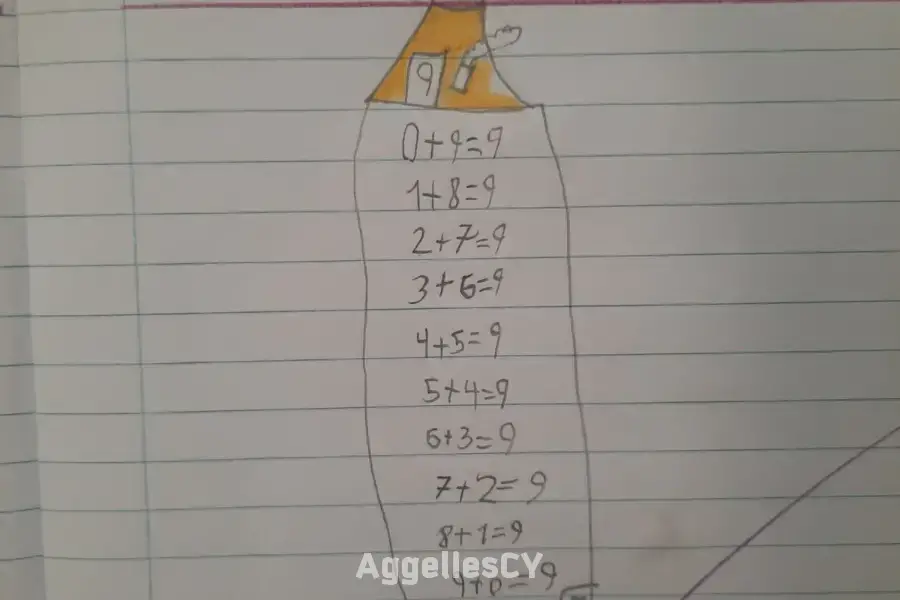 9
0+9=9
1+8=9
2+7=9
3+6=9
4+5=9
5+4=9
6+3=9
7+2=9
8+1=9
AggellesCY
9+0=9